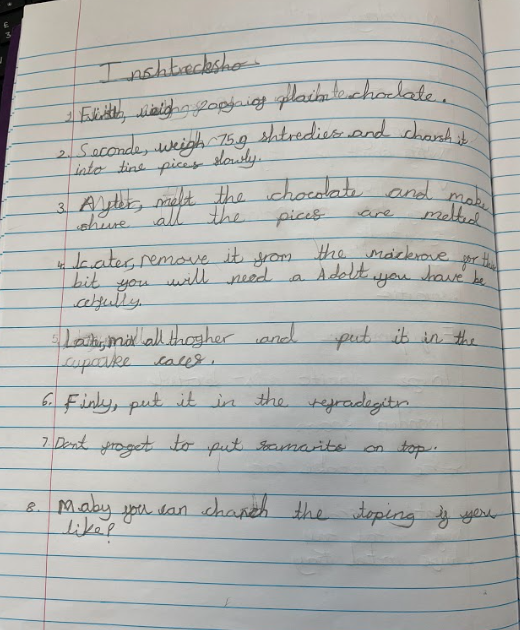 Inshtrecksho
1. Firstth, weigh 200g of plain te choclate.
2. Seconde, weigh 75g shtredies and charsh it
into tine pices slowly.
3 Aytet, melt the chocolate and make
shure all the pices are melted
4. Later, remove it from the maickrove for this
bit you will need a Adolt you have be
cerfully.
5. Lastly, mix all thogher and put it in the
cupcake cases.
6. Finly, put it in the
7 Dont froget to put on top.
8. Maby you can the toping if you
like?